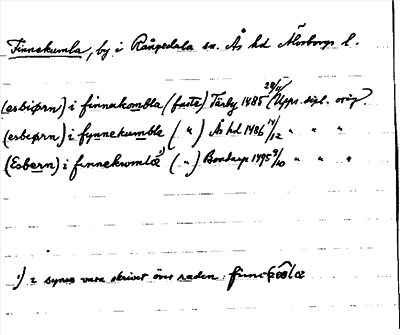 Finnekumla, by i Rångedala sn. Ås hd Älvsborgs l.
(esbiørn) i finnekombla (faste) Tärby 1485 28/11 Upps. dipl. orig.
(esbeørn) i fynnekumble ( " ) Ås hd 1486 14/12 " " "
(Esbern) i finnekwmlæ 1) ( " ) Bondarp 1495 9/10 " " "
1) z synes vara skrivet över raden: